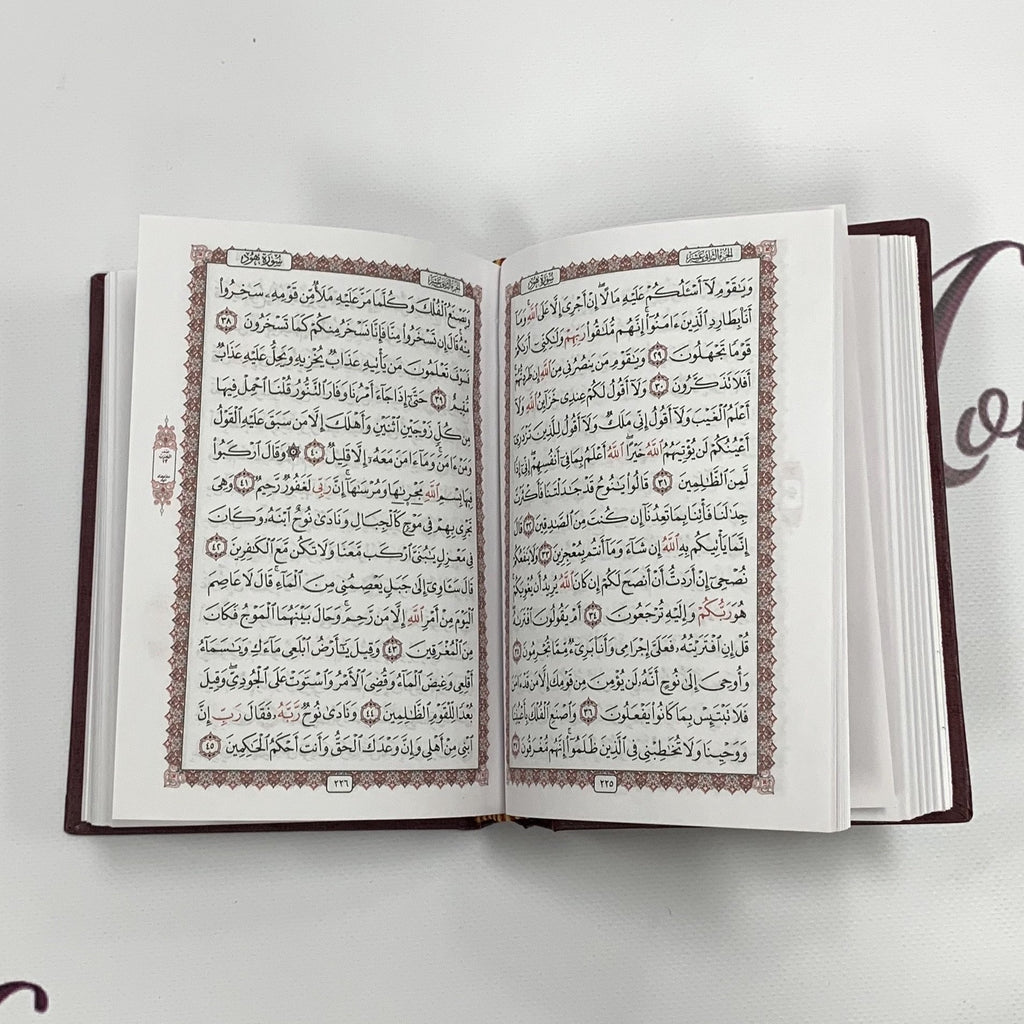 الجزء الثاني عشر
سورة هود
وَيَٰقَوْمِ لَآ أَسْـَٔلُكُمْ عَلَيْهِ مَالًا ۖ إِنْ أَجْرِىَ إِلَّا عَلَى ٱللَّهِ ۚ وَمَآ
أَنَا۠ بِطَارِدِ ٱلَّذِينَ ءَامَنُوٓا۟ ۚ إِنَّهُم مُّلَٰقُوا۟ رَبِّهِمْ وَلَٰكِنِّىٓ أَرَىٰكُمْ
قَوْمًا تَجْهَلُونَ ٢٩ وَيَٰقَوْمِ مَن يَنصُرُنِى مِنَ ٱللَّهِ إِن طَرَدتُّهُمْ ۚ
أَفَلَا تَذَكَّرُونَ ٣٠ وَلَآ أَقُولُ لَكُمْ عِندِى خَزَآئِنُ ٱللَّهِ وَلَآ
أَعْلَمُ ٱلْغَيْبَ وَلَآ أَقُولُ إِنِّى مَلَكٌ وَلَآ أَقُولُ لِلَّذِينَ تَزْدَرِىٓ
أَعْيُنُكُمْ لَن يُؤْتِيَهُمُ ٱللَّهُ خَيْرًا ۖ ٱللَّهُ أَعْلَمُ بِمَا فِىٓ أَنفُسِهِمْ ۖ إِنِّىٓ إِذًا
لَّمِنَ ٱلظَّٰلِمِينَ ٣١ قَالُوا۟ يَٰنُوحُ قَدْ جَٰدَلْتَنَا فَأَكْثَرْتَ
جِدَٰلَنَا فَأْتِنَا بِمَا تَعِدُنَآ إِن كُنتَ مِنَ ٱلصَّٰدِقِينَ ٣٢ قَالَ
إِنَّمَا يَأْتِيكُم بِهِ ٱللَّهُ إِن شَآءَ وَمَآ أَنتُم بِمُعْجِزِينَ ٣٣ وَلَا يَنفَعُكُمْ
نُصْحِىٓ إِنْ أَرَدتُّ أَنْ أَنصَحَ لَكُمْ إِن كَانَ ٱللَّهُ يُرِيدُ أَن يُغْوِيَكُمْ ۚ
هُوَ رَبُّكُمْ وَإِلَيْهِ تُرْجَعُونَ ٣٤ أَمْ يَقُولُونَ ٱفْتَرَىٰهُ ۖ
قُلْ إِنِ ٱفْتَرَيْتُهُۥ فَعَلَىَّ إِجْرَامِى وَأَنَا۠ بَرِىٓءٌ مِّمَّا تُجْرِمُونَ ٣٥
وَأُوحِىَ إِلَىٰ نُوحٍ أَنَّهُۥ لَن يُؤْمِنَ مِن قَوْمِكَ إِلَّا مَن قَدْ ءَامَنَ
فَلَا تَبْتَئِسْ بِمَا كَانُوا۟ يَفْعَلُونَ ٣٦ وَٱصْنَعِ ٱلْفُلْكَ بِأَعْيُنِنَا
وَوَحْيِنَا وَلَا تُخَٰطِبْنِى فِى ٱلَّذِينَ ظَلَمُوٓا۟ ۚ إِنَّهُم مُّغْرَقُونَ ٣٧
٢٢٥
الجزء الثاني عشر
سورة هود
وَيَصْنَعُ ٱلْفُلْكَ وَكُلَّمَا مَرَّ عَلَيْهِ مَلَأٌ مِّن قَوْمِهِۦ سَخِرُوا۟
مِنْهُ ۚ قَالَ إِن تَسْخَرُوا۟ مِنَّا فَإِنَّا نَسْخَرُ مِنكُمْ كَمَا تَسْخَرُونَ ٣٨
فَسَوْفَ تَعْلَمُونَ مَن يَأْتِيهِ عَذَابٌ يُخْزِيهِ وَيَحِلُّ عَلَيْهِ عَذَابٌ
مُّقِيمٌ ٣٩ حَتَّىٰٓ إِذَا جَآءَ أَمْرُنَا وَفَارَ ٱلتَّنُّورُ قُلْنَا ٱحْمِلْ فِيهَا
مِن كُلٍّ زَوْجَيْنِ ٱثْنَيْنِ وَأَهْلَكَ إِلَّا مَن سَبَقَ عَلَيْهِ ٱلْقَوْلُ
وَمَنْ ءَامَنَ ۚ وَمَآ ءَامَنَ مَعَهُۥٓ إِلَّا قَلِيلٌ ٤٠ ۞ وَقَالَ ٱرْكَبُوا۟
فِيهَا بِسْمِ ٱللَّهِ مَجْر۪ىٰهَا وَمُرْسَىٰهَآ ۚ إِنَّ رَبِّى لَغَفُورٌ رَّحِيمٌ ٤١ وَهِىَ
تَجْرِى بِهِمْ فِى مَوْجٍ كَٱلْجِبَالِ وَنَادَىٰ نُوحٌ ٱبْنَهُۥ وَكَانَ
فِى مَعْزِلٍ يَٰبُنَىَّ ٱرْكَب مَّعَنَا وَلَا تَكُن مَّعَ ٱلْكَٰفِرِينَ ٤٢
قَالَ سَـَٔاوِىٓ إِلَىٰ جَبَلٍ يَعْصِمُنِى مِنَ ٱلْمَآءِ ۚ قَالَ لَا عَاصِمَ
ٱلْيَوْمَ مِنْ أَمْرِ ٱللَّهِ إِلَّا مَن رَّحِمَ ۚ وَحَالَ بَيْنَهُمَا ٱلْمَوْجُ فَكَانَ
مِنَ ٱلْمُغْرَقِينَ ٤٣ وَقِيلَ يَٰٓأَرْضُ ٱبْلَعِى مَآءَكِ وَيَٰسَمَآءُ
أَقْلِعِى وَغِيضَ ٱلْمَآءُ وَقُضِىَ ٱلْأَمْرُ وَٱسْتَوَتْ عَلَى ٱلْجُودِىِّ ۖ وَقِيلَ
بُعْدًا لِّلْقَوْمِ ٱلظَّٰلِمِينَ ٤٤ وَنَادَىٰ نُوحٌ رَّبَّهُۥ فَقَالَ رَبِّ إِنَّ
ٱبْنِى مِنْ أَهْلِى وَإِنَّ وَعْدَكَ ٱلْحَقُّ وَأَنتَ أَحْكَمُ ٱلْحَٰكِمِينَ ٤٥
٢٢٦